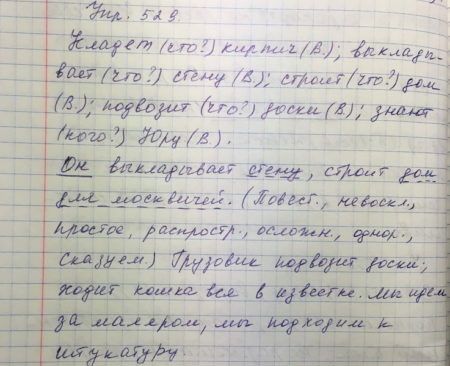 Упр. 529.
Кладет (что?) кирпич (В.); выклады-
вает (что?) стену (В.); строит (что?) дом
(В.); подвозит (что?) доски (В.); знают
(кого?) Юру (В.).
Он выкладывает стену, строит дом
для москвичей. (Повест., невоскл.,
простое, распростр., осложн., однор.,
сказуем.) Грузовик подвозит доски;
ходит кошка вся в известке. Мы идем
за маляром, мы подходим к
штукатуру.